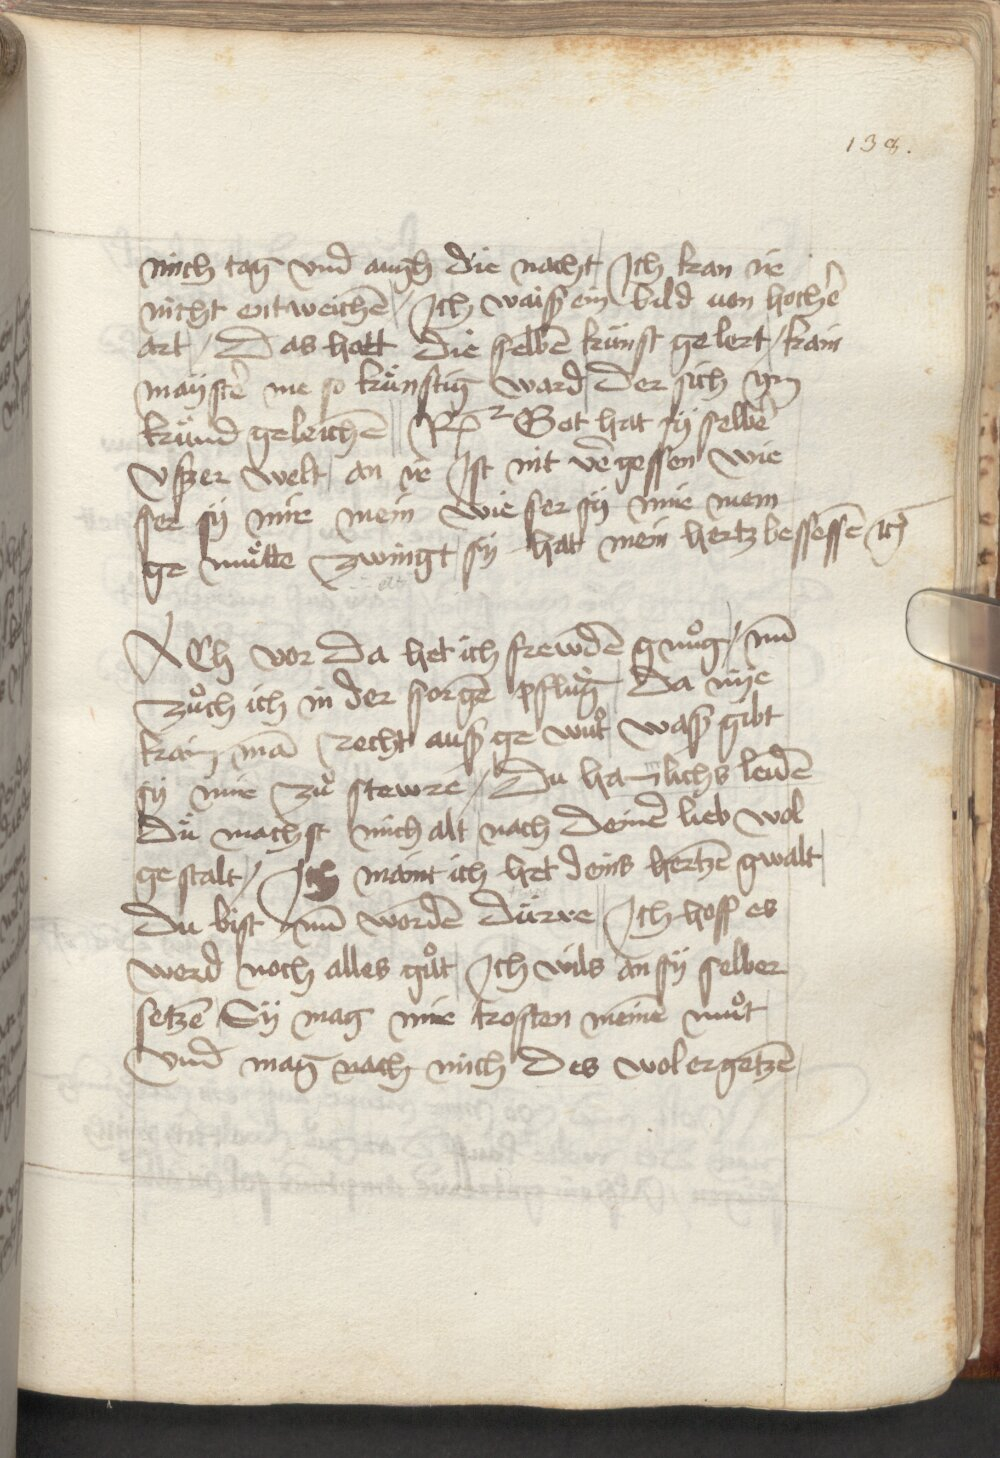 138.
mich tag vnd augh die nacht / Ich kan ir
nicht entweichē / Ich waisß ein bild uon hochē
art / Das hatt die selbē künst gelert / kain
maÿstē nie so künstig ward der sich ÿm
kund geleichē Rp 2 Got hat sÿ selbē
vßzer welt an ir Ist nit vēgessen wie
ser sÿ mir mein wie ser sÿ mir mein
ge mütte zwingt sÿ hat mein hertz bessessē ich
ACh vor da het ich frewdē gnůg / nū
zůch ich in der sorgē pflůg Da nÿe
kain mā recht ausß ge wůt wasß gibt
sÿ mir zů stewre / Du hamlichs leidē
Dů machst mich alt nach deinē lieb wol
gestalt / Ich maint ich het deins hertzē gwalt
Du bist nū wordē dürre Ich hoff es
werd noch alles gůt Ich wils an sÿ selber
setzē Sÿ mag mir trosten meinē můt
Vnd mag nach mich des wol ergetzē